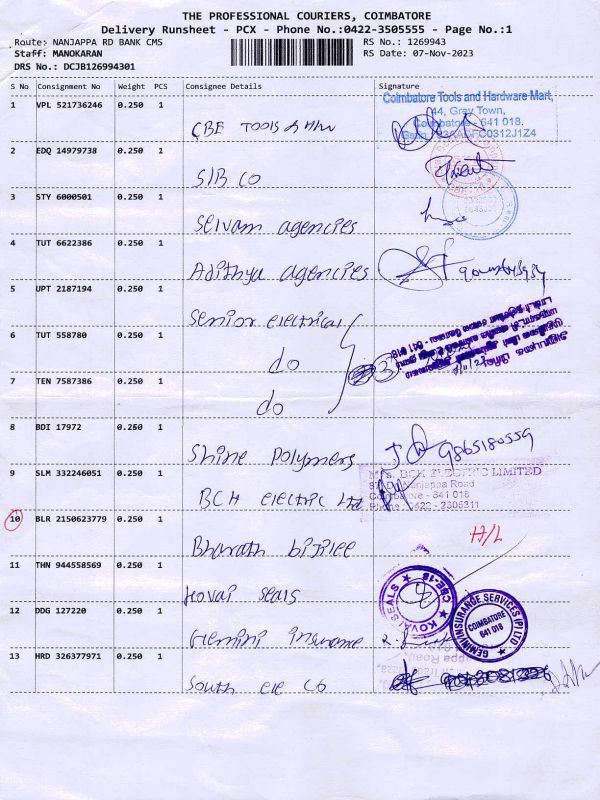 THE PROFESSIONAL COURIERS, COIMBATORE
Delivery Runsheet - PCX - Phone No.:0422-3505555 - Page No.:1
Route: NANJAPPA RD BANK CMS RS No.: 1269943
Staff: MANOKARAN RS Date: 07-Nov-2023
DRS No.: DCJB126994301
S No Consignment No Weight PCS Consignee Details Signature
1 VPL 521736246 0.250 1
CBE Tools & H/W
Coimbatore Tools and Hardware Mart,
44, Grey Town,
Coimbatore - 641 018.
2 EDQ 14979738 0.250 1
SIB CO
3 STY 6000501 0.250 1
Selvam agencies
4 TUT 6622386 0.250 1
Adithya agencies
5 UPT 2187194 0.250 1
Senior electrical
6 TUT 558780 0.250 1
do
3
7 TEN 7587386 0.250 1
do
8 BDI 17972 0.250 1
Shine Polymers
9865180559
9 SLM 332246051 0.250 1
BCH electric Ltd
M/s. BCH ELECTRIC LIMITED
Nanjappa Road
Coimbatore - 641 018
Phone : 0422 - 2305311
10 BLR 2150623779 0.250 1
Bharath bijlee
H/L
11 THN 944558569 0.250 1
Kovai seals
KOVAI SEALS CBE-18
12 DDG 127220 0.250 1
Gemini insurance
GEMINI INSURANCE SERVICES (P) LTD
COIMBATORE
641 018
13 HRD 326377971 0.250 1
South ele Co